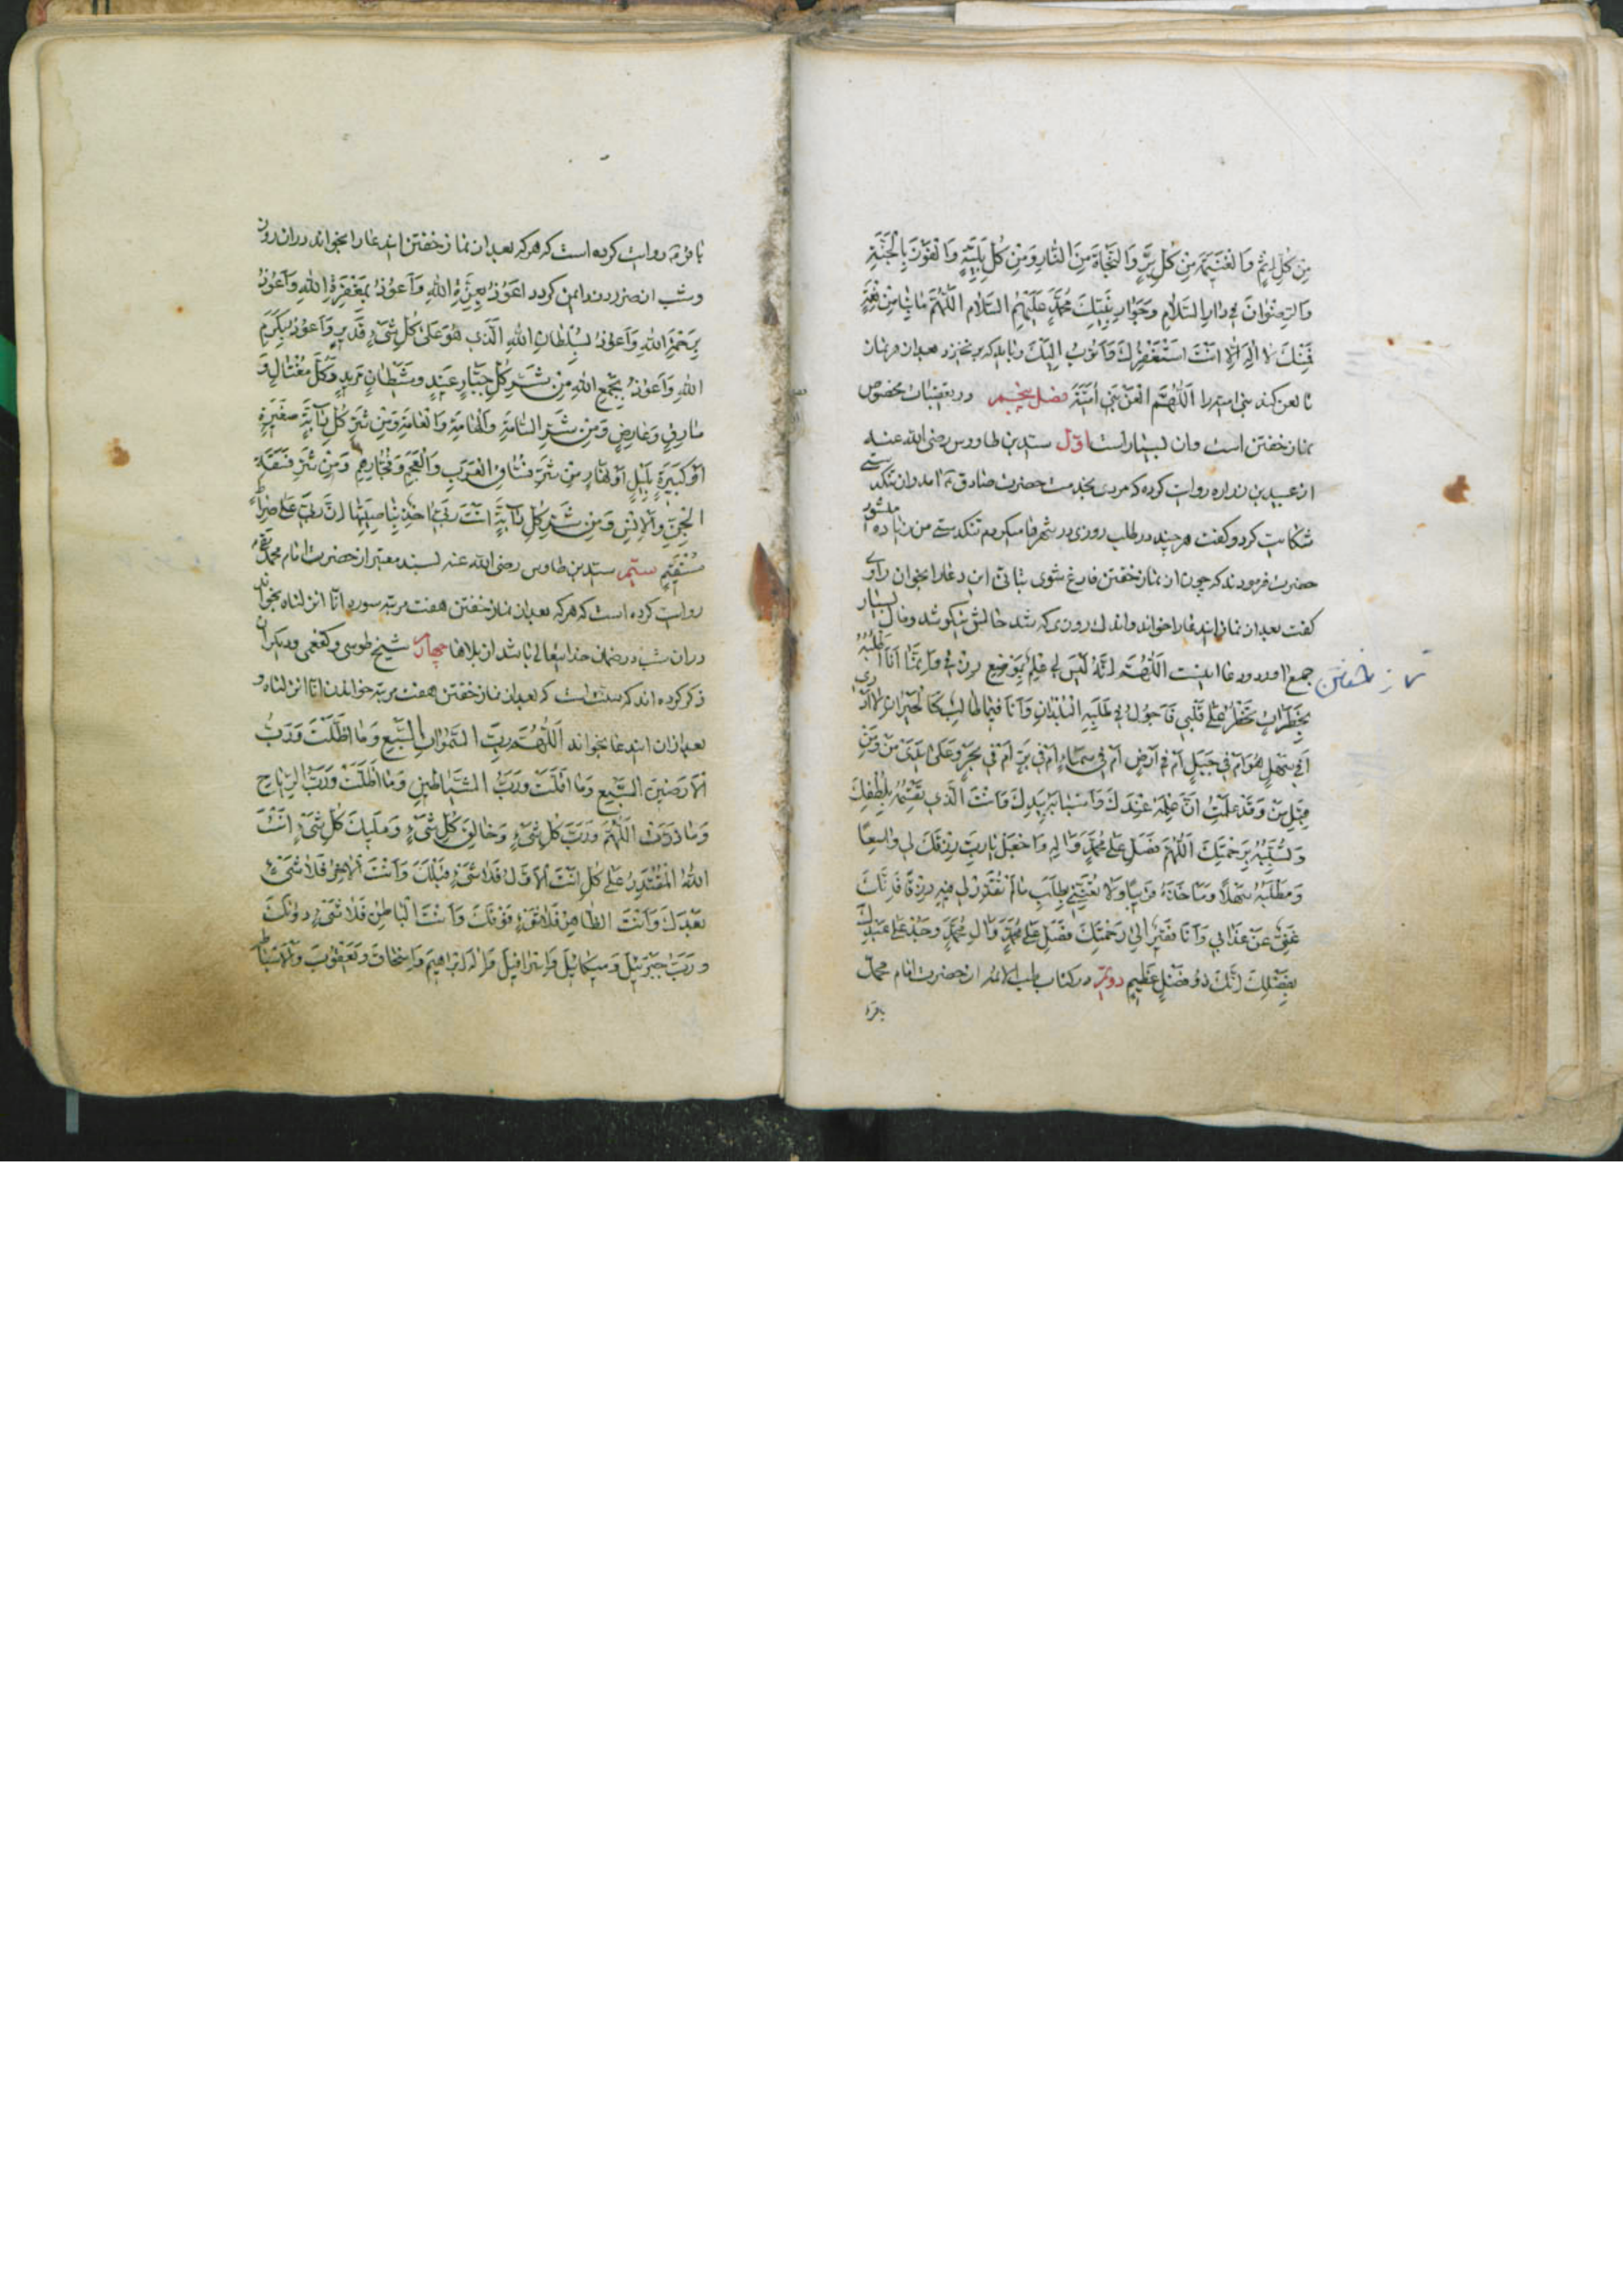 مِنْ كُلِّ اِثْمٍ وَالْغَنيمَةَ مِنْ كُلِّ بِرٍّ وَالنَّجاةَ مِنَ النّارِ وَمِنْ كُلِّ بَلِيَّةٍ وَالْفَوْزَ بِالْجَنَّةِ
وَالرِّضْوانَ في دارِ السَّلامِ وَجِوارِ نَبِيِّكَ مُحَمَّدٍ عَلَيْهِمُ السَّلام اَللّهُمَّ ما بِنا مِنْ نِعْمَةٍ
فَمِنْكَ لا اِلهَ اِلّا اَنْتَ اَسْتَغْفِرُكَ وَاَتُوبُ اِلَيْكَ و باید که برنخیزد بعد از هر نماز
تا لعن کند بنی امیه را اَللّهُمَّ الْعَنْ بَني اُمَيَّةَ فصل پنجم در تعقیبات مخصوص
نماز خفتن است و ان بسیار است اوّل سیّد بن طاووس رضی الله عنه
از عبید بن زراره روایت کرده که مردی بخدمت حضرت صادق ع امد و از تنکدستی
شکایت کرد و کفت هر چند در طلب روزی در شهرها میکردم تنکدستی من زیاده میشود
حضرت فرمودند که چون از نماز خفتن فارغ شوی بتأنّی این دعا را بخوان راوی
کفت بعد از نماز ایندعا را خواند و اندک روزی که شد حالش نیکو شد و مال بسیار
جمع اورد و دعا اینست اَللّهُمَّ اِنَّهُ لَيْسَ لي عِلْمٌ بِمَوْضِعِ رِزْقي وَاِنَّما اَنَا اَطْلُبُهُ
نماز خفتن
بِخَطَراتٍ تَخْطُرُ عَلى قَلْبي فَاَجُولُ في طَلَبِهِ الْبُلْدانَ وَاَنَا فيما طالِبٌ كَالْحَيْرانِ لا اَدْري
اَفي سَهْلٍ هُوَ اَمْ في جَبَلٍ اَمْ في اَرْضٍ اَمْ في سَماءٍ اَمْ في بَرٍّ اَمْ في بَحْرٍ وَعَلى يَدَيْ مَنْ وَمِنْ
قِبَلِ مَنْ وَقَدْ عَلِمْتُ اَنَّ عِلْمَهُ عِنْدَكَ وَاَسْبابَهُ بِيَدِكَ وَاَنْتَ الَّذي تَقْسِمُهُ بِلُطْفِكَ
وَتُسَبِّبُهُ بِرَحْمَتِكَ اَللّهُمَّ فَصَلِّ عَلى مُحَمَّدٍ وَالِهِ وَاجْعَلْ يا رَبِّ رِزْقَكَ لي واسِعًا
وَمَطْلَبَهُ سَهْلًا وَمَأْخَذَهُ قَريبًا وَلا تُعَنِّني بِطَلَبِ ما لَمْ تُقَدِّرْ لي فيهِ رِزْقًا فَاِنَّكَ
غَنِيٌّ عَنْ عَذابي وَاَنَا فَقيرٌ اِلى رَحْمَتِكَ فَصَلِّ عَلى مُحَمَّدٍ وَالِ مُحَمَّدٍ وَجُدْ عَلى عَبْدِكَ
بِفَضْلِكَ اِنَّكَ ذُو فَضْلٍ عَظيمٍ دویّم در کتاب طب الائمه از حضرت امام محمد
باقر
باقر ع روایت کرده است که هر که بعد از نماز خفتن ایندعا را بخواند در ان روز
و شب از ضرر دزد ایمن کردد اَعُوذُ بِعِزَّةِ اللهِ وَاَعُوذُ بِمَغْفِرَةِ اللهِ وَاَعُوذُ
بِرَحْمَةِ اللهِ وَاَعُوذُ بِسُلْطانِ اللهِ الَّذي هُوَ عَلى كُلِّ شَيْءٍ قَديرٌ وَاَعُوذُ بِكَرَمِ
اللهِ وَاَعُوذُ بِجَمْعِ اللهِ مِنْ شَرِّ كُلِّ جَبّارٍ عَنيدٍ وَشَيْطانٍ مَريدٍ وَكُلِّ مُغْتالٍ وَ
سارِقٍ وَعارِضٍ وَمِنْ شَرِّ السّامَّةِ وَالْهامَّةِ وَالْعامَّةِ وَمِنْ شَرِّ كُلِّ دابَّةٍ صَغيرَةٍ
اَوْ كَبيرَةٍ بِلَيْلٍ اَوْ نَهارٍ مِنْ شَرِّ فُسّاقِ الْعَرَبِ وَالْعَجَمِ وَفُجّارِهِمْ وَمِنْ شَرِّ فَسَقَةِ
الْجِنِّ وَالْاِنْسِ وَمِنْ شَرِّ كُلِّ دابَّةٍ اَنْتَ رَبّي اخِذٌ بِناصِيَتِها اِنَّ رَبّي عَلى صِراطٍ
مُسْتَقيمٍ سیّم سیّد بن طاوس رضی الله عنه بسند معتبر از حضرت امام محمد تقی ع
روایت کرده است که هر که بعد از نماز خفتن هفت مرتبه سوره انّا انزلناه بخواند
در ان شب در ضمان خدایتعالی باشد از بلاها چهارم شیخ طوسی و کفعمی و دیکران
ذکر کرده اند که سنّت است که بعد از نماز خفتن هفت مرتبه خواندن انّا انزلناه و
بعد از ان ایندعا بخواند اَللّهُمَّ رَبَّ السَّمواتِ السَّبْعِ وَما اَظَلَّتْ وَرَبَّ
الْاَرَضينَ السَّبْعِ وَما اَقَلَّتْ وَرَبَّ الشَّياطينِ وَما اَضَلَّتْ وَرَبَّ الرِّياحِ
وَما ذَرَتْ اَللّهُمَّ وَرَبَّ كُلِّ شَيْءٍ وَخالِقَ كُلِّ شَيْءٍ وَمَليكَ كُلِّ شَيْءٍ اَنْتَ
اللهُ الْمُقْتَدِرُ عَلى كُلِّ اَنْتَ الْاَوَّلُ فَلا شَيْءَ قَبْلَكَ وَاَنْتَ الْاخِرُ فَلا شَيْءَ
بَعْدَكَ وَاَنْتَ الظّاهِرُ فَلا شَيْءَ فَوْقَكَ وَاَنْتَ الْباطِنُ فَلا شَيْءَ دُونَكَ
وَرَبَّ جَبْرَئيلَ وَميكائيلَ وَاِسْرافيلَ وَاِلهَ اِبْراهيمَ وَاِسْحاقَ وَيَعْقُوبَ وَالْاَسْباطِ